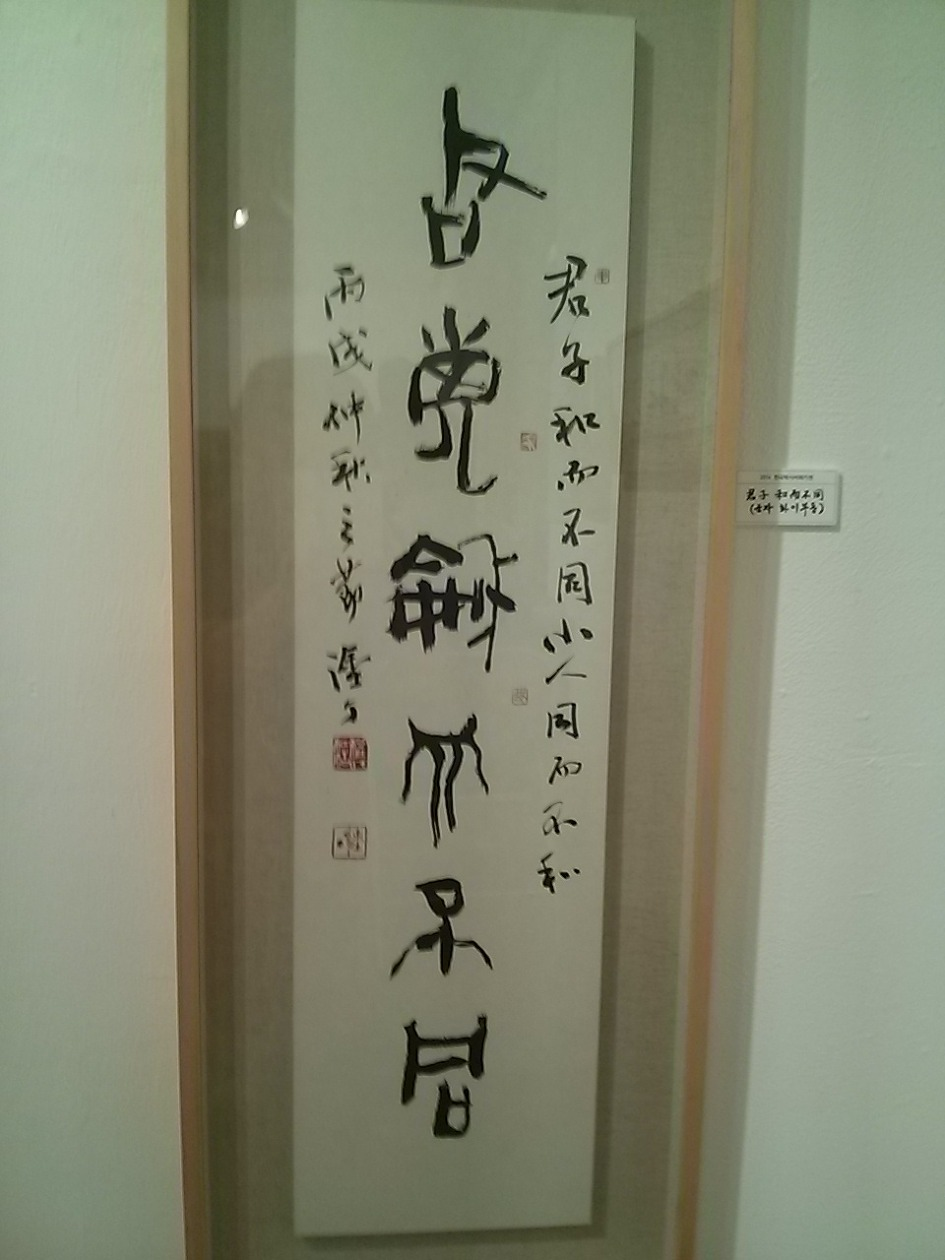 君子和而不同小人同而不和
君子龢而不同
丙戌仲秋之節
君子 和而不同
(군자 화이부동)